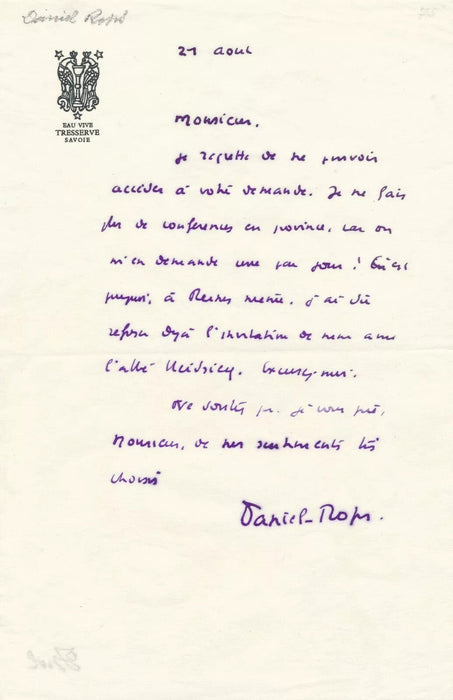 Daniel Rops
EAU VIVE
TRESSERVE
SAVOIE
21 août
Monsieur,
je regrette de ne pouvoir
accéder à votre demande. Je ne fais
plus de conférences en province, car on
m'en demande une par jour !
à Reims même, j'ai dû
refuser déjà l'invitation de mon ami
l'abbé Excusez-moi.
Ne doutez pas, je vous prie,
Monsieur, de mes sentiments très
choisis
Daniel-Rops.